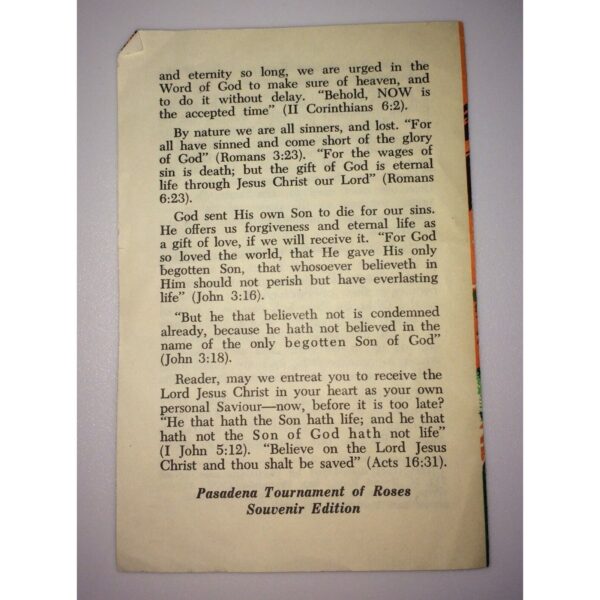 and eternity so long, we are urged in the
Word of God to make sure of heaven, and
to do it without delay. “Behold, NOW is
the accepted time” (II Corinthians 6:2).
By nature we are all sinners, and lost. “For
all have sinned and come short of the glory
of God” (Romans 3:23). “For the wages of
sin is death; but the gift of God is eternal
life through Jesus Christ our Lord” (Romans
6:23).
God sent His own Son to die for our sins.
He offers us forgiveness and eternal life as
a gift of love, if we will receive it. “For God
so loved the world, that He gave His only
begotten Son, that whosoever believeth in
Him should not perish but have everlasting
life” (John 3:16).
“But he that believeth not is condemned
already, because he hath not believed in the
name of the only begotten Son of God”
(John 3:18).
Reader, may we entreat you to receive the
Lord Jesus Christ in your heart as your own
personal Saviour—now, before it is too late?
“He that hath the Son hath life; and he that
hath not the Son of God hath not life”
(I John 5:12). “Believe on the Lord Jesus
Christ and thou shalt be saved” (Acts 16:31).
Pasadena Tournament of Roses
Souvenir Edition